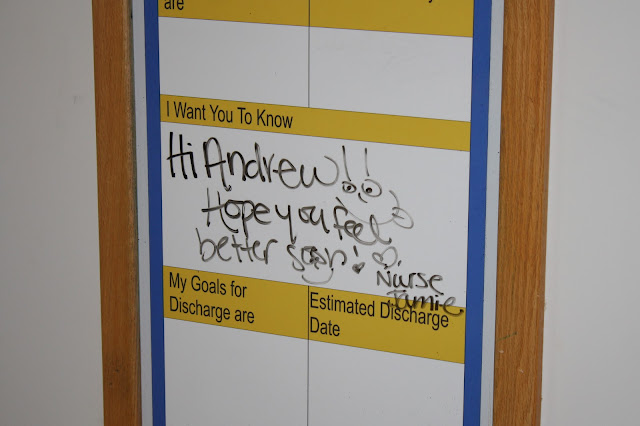 are
I Want You To Know
Hi Andrew!!
Hope you feel
better soon!
Nurse
Jamie
My Goals for
Discharge are
Estimated Discharge
Date